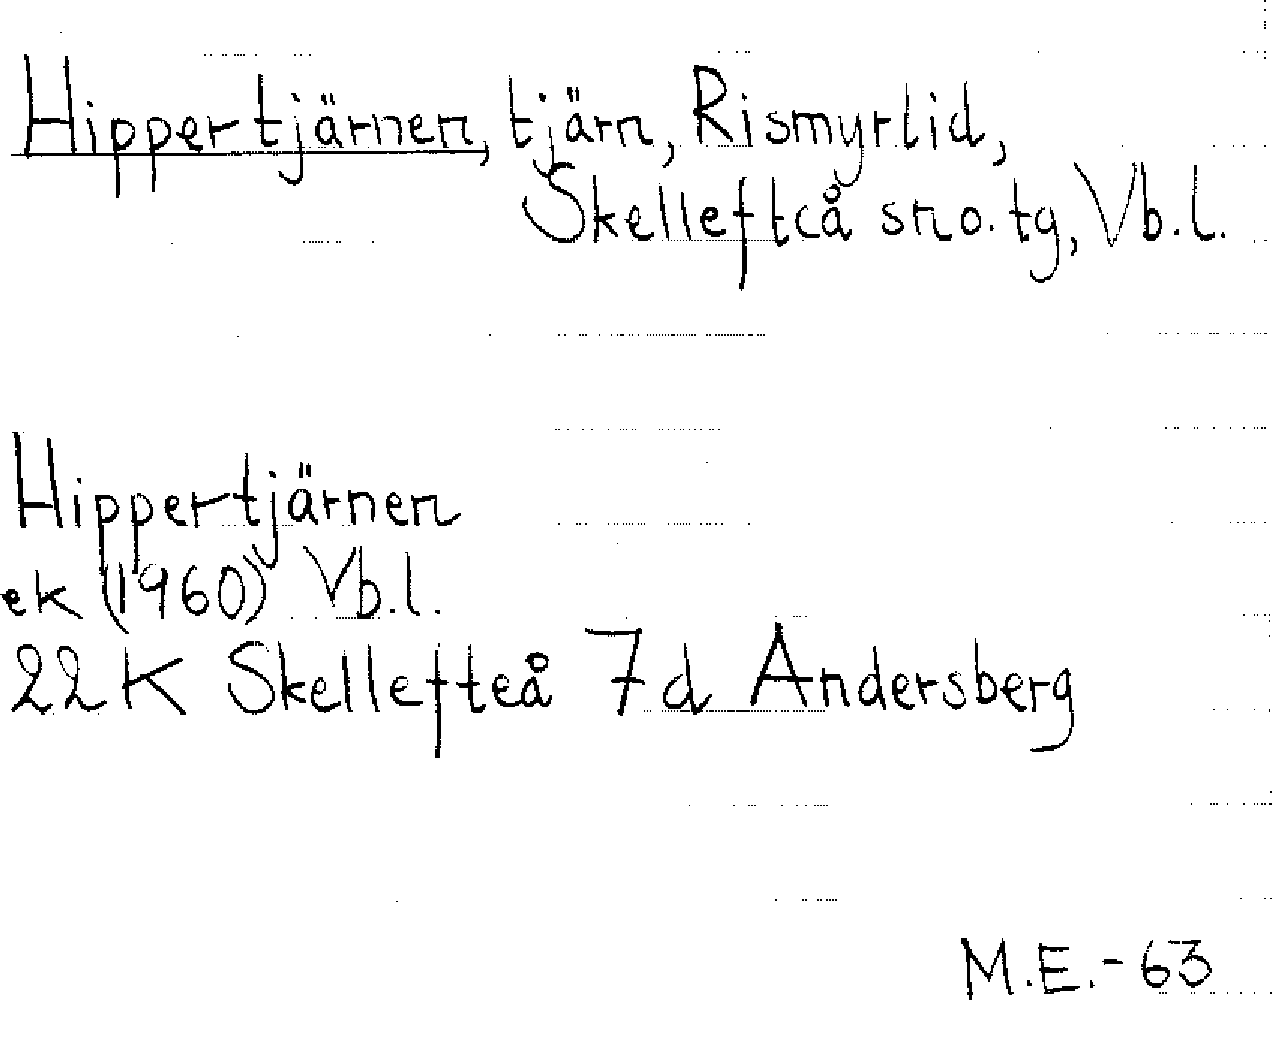 Hippertjärnen, tjärn, Rismyrlid,
Skellefteå sno. tg, Vb.l.
Hippertjärnen
ek (1960) Vb.l.
22K Skellefteå 7d Andersberg
M.E.-63